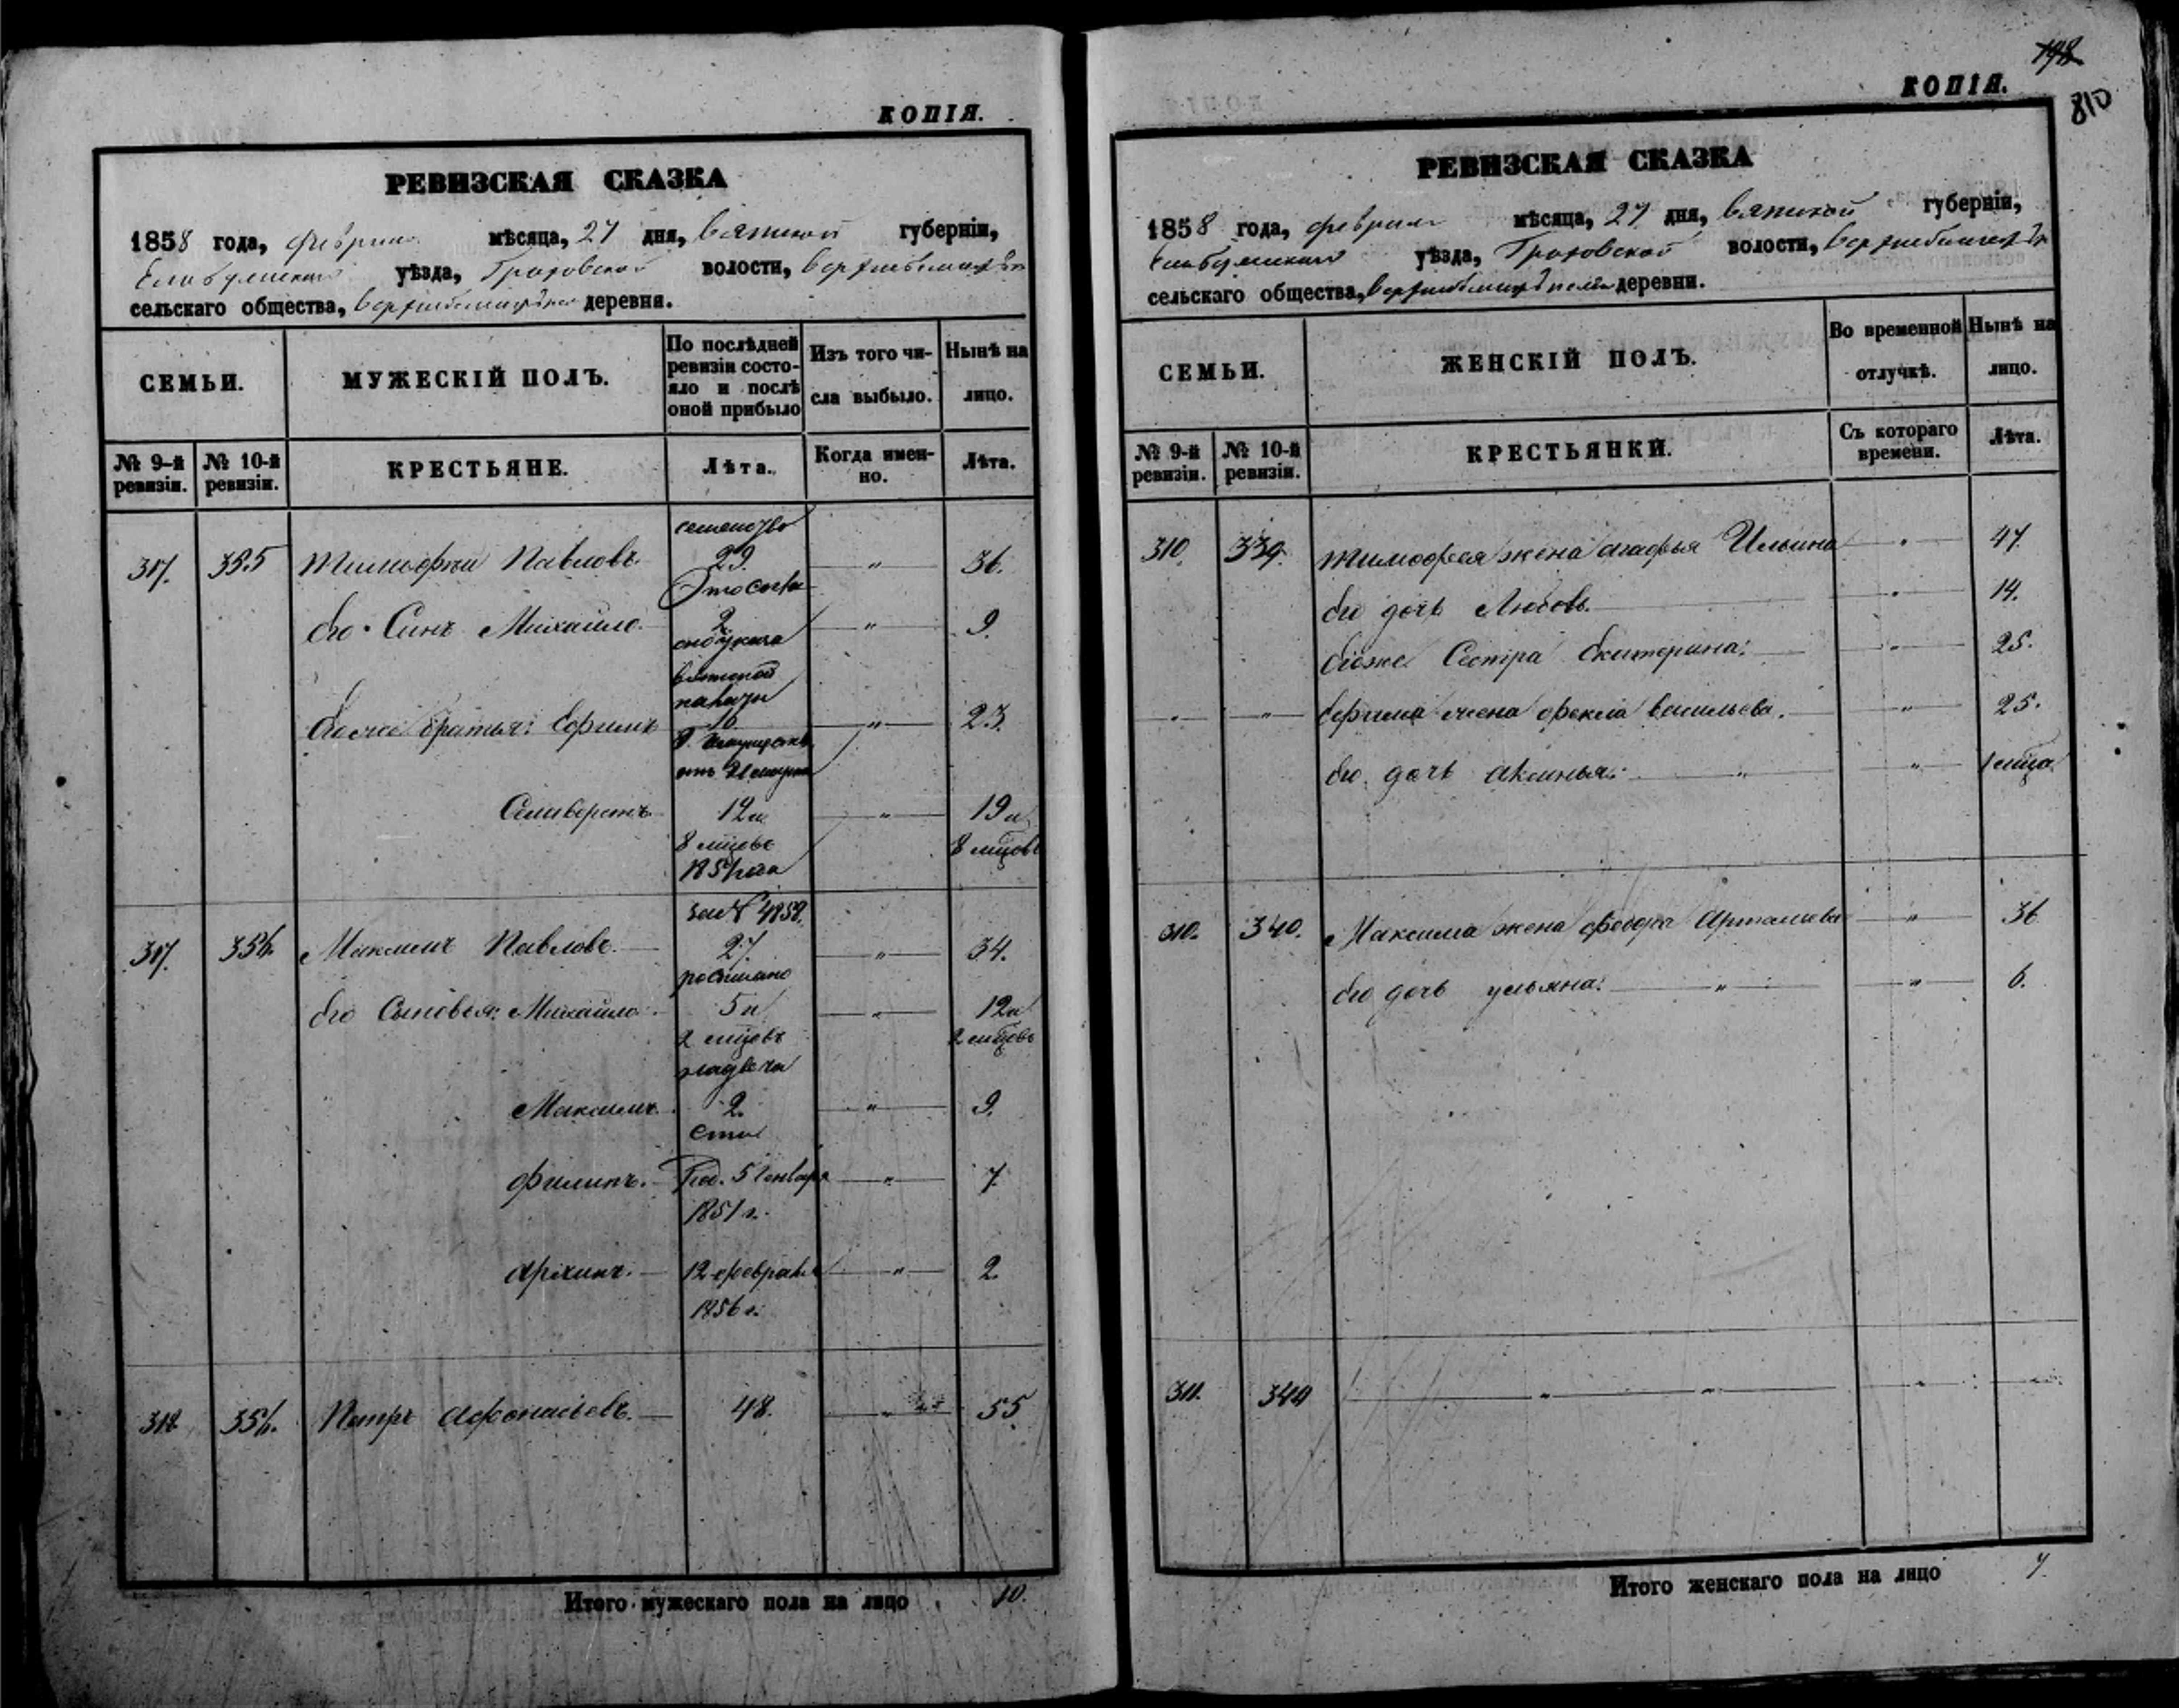 КОПІЯ.
РЕВИЗСКАЯ СКАЗКА
1858 года, февраля мѣсяца, 27 дня, Вятской губерніи,
Елабужскаго уѣзда, Граховской волости,
сельскаго общества, деревня.
СЕМЬИ.
МУЖЕСКІЙ ПОЛЪ.
По послѣдней ревизіи состояло и послѣ оной прибыло
Изъ того числа выбыло.
Нынѣ на лицо.
№ 9-й ревизіи.
№ 10-й ревизіи.
КРЕСТЬЯНЕ.
Лѣта.
Когда именно.
Лѣта.
семейство
317. 355 Тимофей Павловъ. 29. " 36.
Это
его Сынъ Михайло. 2. " 9.
Вятской
палаты
его же братья: Ефимъ 16. " 23.
Г. Имуществ
Селиверстъ 12 и " 19 и
8 мцовъ 8 мцовъ
1857 года
за № 4858.
317. 356. Максимъ Павловъ. 27. " 34.
росписано
его Сыновья: Михайло. 5 и " 12 и
2 мцовъ 2 мцовъ
надвечи
Максимъ. 2. " 9.
Филипъ. Род. 5 Генваря " 7.
1851 г.
Архипъ. 12 февраля " 2.
1856 г.
318. 356. Петръ Афонасьевъ. 48. " 55
Итого мужескаго пола на лицо 10.
198
810
КОПІЯ.
РЕВИЗСКАЯ СКАЗКА
1858 года, февраля мѣсяца, 27 дня, Вятской губерніи,
Елабужскаго уѣзда, Граховской волости,
сельскаго общества, деревни.
СЕМЬИ.
ЖЕНСКІЙ ПОЛЪ.
Во временной отлучкѣ.
Нынѣ на лицо.
№ 9-й ревизіи.
№ 10-й ревизіи.
КРЕСТЬЯНКИ.
Съ котораго времени.
Лѣта.
310. 339. Тимофея жена Агафья Ильина " 47.
его дочь Любовь. " 14.
его же Сестра Екатерина: " 25.
" " Ефима жена Фекла Васильева. " 25.
его дочь Аксинья: " " 1 мца
310. 340. Максима жена Федора Артамьева " 36
его дочь Ульяна: " " 6.
311. 340 " " " "
Итого женскаго пола на лицо 7.